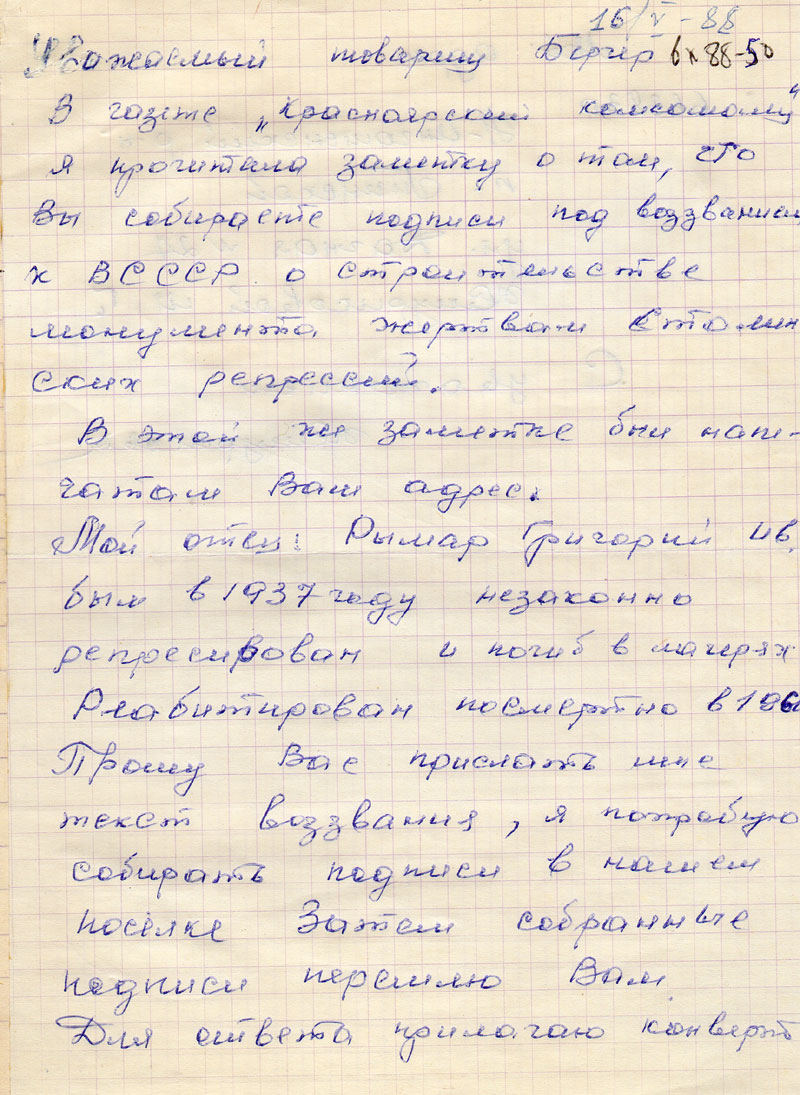 16/V-88
Уважаемый товарищ Бергер 6х88-50
В газете „Красноярский комсомолец"
я прочитала заметку о том, что
Вы собираете подписи под воззванием
к ВСССР о строительстве
монумента жертвам Сталин
ских репрессий.
В этой же заметке был напе-
чатан Ваш адрес.
Мой отец: Рымар Григорий Ив.
был в 1937 году незаконно
репресирован и погиб в лагерях
Реабитирован посмертно в
Прошу Вас прислать мне
текст воззвания, я попробую
собирать подписи в нашем
посёлке Затем собранные
подписи перешлю Вам
Для ответа прилагаю конверт